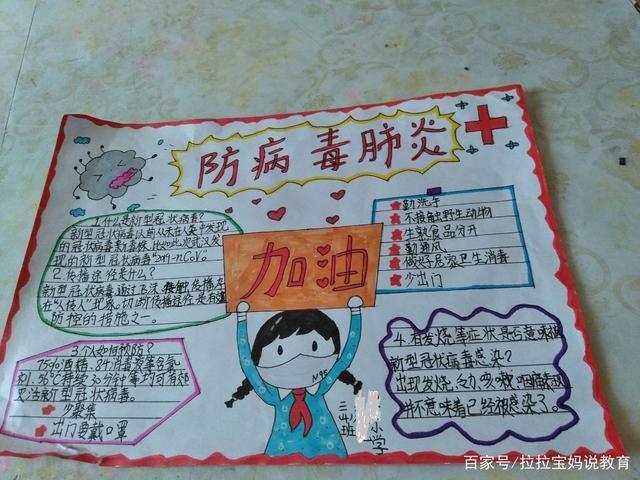 防病毒肺炎
1.什么是新型冠状病毒?
新型冠状病毒以前从未在人类中发现
的冠状病毒
现的新型冠状病毒
2.传播途径是什么?
新型冠状病毒通过
在"人传人"现象,切断传播途径是
防控的措施之一。
3.个人如何预防?
75%酒精
56℃持续30分钟等均可有效
灭活新型冠状病毒。
少聚集
出门要戴口罩
加油
N95
勤洗手
不接触野生动物
生熟食品分开
勤通风
做好居家卫生消毒
少出门
4.有发烧等症状是否意味被
新型冠状病毒感染?
出现发烧、乏力
并不意味着已经被感染了。
小学
班
百家号/拉拉宝妈说教育